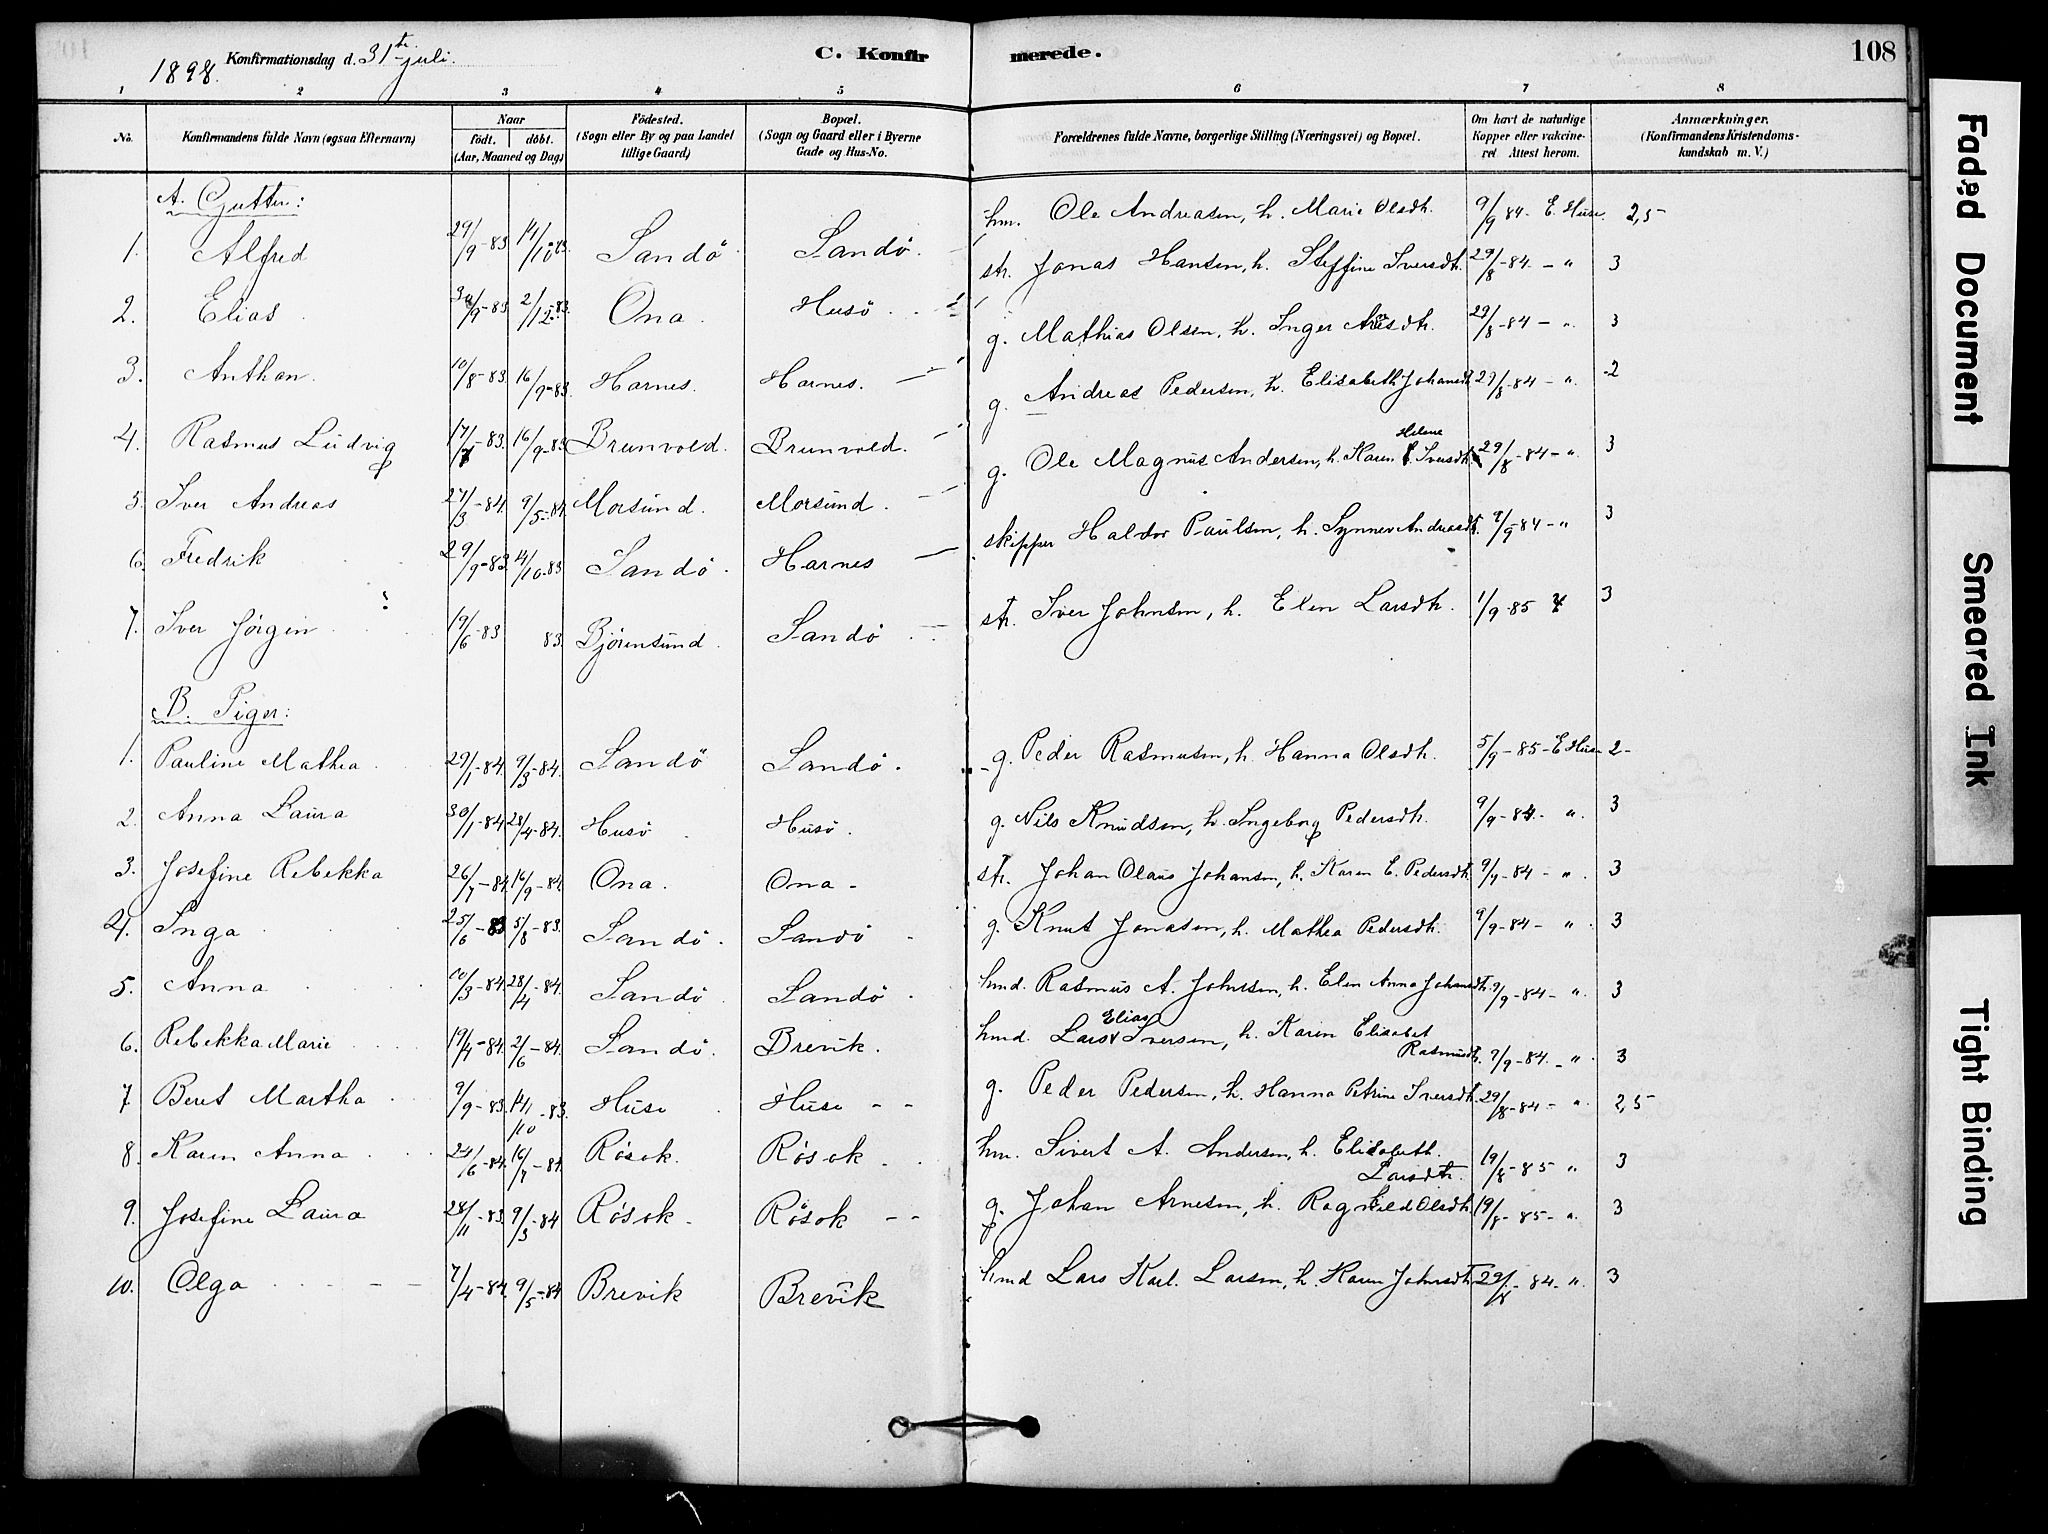 1898. Konfirmationsdag d. 31te juli. C. Konfirmerede. 108
1 2 3 4 5 6 7 8
No. Konfirmandens fulde Navn (ogsaa Efternavn) Naar født. døbt. (Aar, Maaned og Dag) Fødested. (Sogn eller By og paa Landet tillige Gaard) Bopæl. (Sogn og Gaard eller i Byerne Gade og Hus-No. Forældrenes fulde Navne, borgerlige Stilling (Næringsvei) og Bopæl. Om havt de naturlige Kopper eller vakcineret. Attest herom. Anmærkninger. (Konfirmandens Kristendomskundskab m. V.)
A. Gutter:
1. Alfred 29/9-83 14/10 83. Sandö Sandö. hm. Ole Andreasen, h. Marie Olsdh. 9/9 84- E. Huse. 2,5-
2. Elias 30/9-83 2/12-83. Ona. Husö str. Jonas Hansen, h. Steffine Iversdh. 29/8-84. - " 3
3. Anthon. 10/8-83. 16/9-83. Harnes. Harnes. g. Mathias Olsen, h. Inger dh. 29/8-84 - ". 3
4. Rasmus Ludvig 16/9-83 Brunvold. Brunvold. g. Andreas Pedersen, h. Elisabeth Johansdt 29/8-84 - ". 2
5. Iver Andreas 27/3-84. 9/5-84. Morsund. Morsund. g. Ole Magnus Andersen, h. Karen Helene Iversdh. 29/8-84 - ". 3
6. Fredrik 29/9-83 14/10-83 Sandö. Harnes skipper Haldor Paulsen, h. Synnev Andreasdt. 9/9-84 - " 3
7. Iver Jörgen 19/6-83 83. Björnsund. Sandö str. Iver Johnsen, h. Elen Larsdh. 1/9-85 3
B. Piger:
1. Pauline Mathea 29/1-84. 9/3-84. Sandö Sandö. g. Peder Rasmusen, h. Hanna Olsdh. 5/9-85- E Huse 2-
2. Anna Laura 30/1-84 28/4-84. Husö Husö. g. Nils Knudsen, h. Ingeborg Pedersdh. 9/9-84. ". 3
3. Josefine Rebekka 26/7-84. 16/9-84. Ona. Ona - str. Johan Olaus Johansen, h. Karen E. Pedersdt. 9/9-84 - ". 3
4. Inga 25/6-83 5/8-83. Sandö. Sandö g. Knut Jonasen, h. Mathea Pedersdh. 9/9-84 - ". 3
5. Anna 10/3-84. 28/4-84. Sandö Sandö hmd. Rasmus A. Johnsen, h. Elen Anna Johansdt. 9/9-84 - ". 3
6. Rebekka Marie 19/4-84. 2/6-84. Sandö. Brevik. hmd. Lars Elias Iversen, h. Karen Elisabet Rasmusdt. 9/9-84. - " 3
7 Beret Martha 9/9-83. 14/10-83. Huse Huse - - g. Peder Pedersen, h. Hanna Petrine Iversdt. 29/8-84 - ". 2,5-
8. Karen Anna 24/6-84. 16/7-84. Rösok. Rösok hm. Sivert A. Andersen, h. Elisabeth Larsdtr. 19/8-85 " 3
9. Josefine Laura 28/11-83. 9/3-84 Rösok. Rösok - - g. Johan Arnesen, h. Ragnhild Olsdh. 19/8-85 - ". 3
10. Olga 7/4-84. 9/5-84 Brevik Brevik hmd Lars Karl. Larsen, h. Karen Johnsdt. 29/8-84 - ". 3
Faded Document
Smeared Ink
Tight Binding